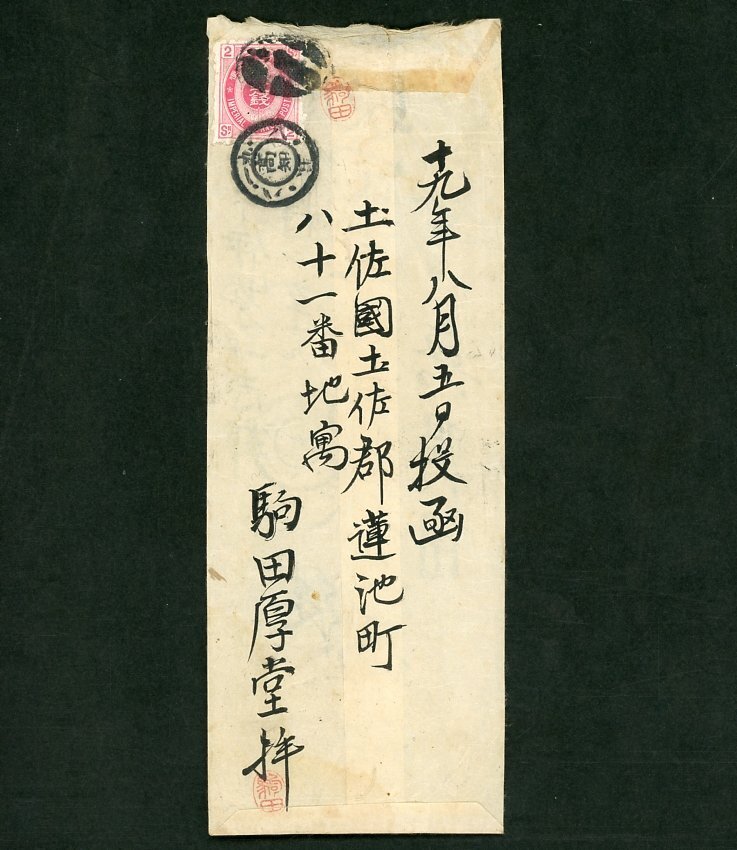 十九年八月五日投函
土佐國土佐郡蓮池町
八十一番地寓
駒田厚堂拝
2
銭
IMPERIAL